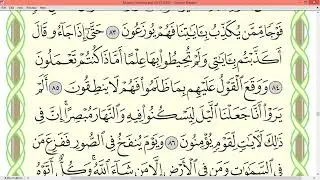 فَوْجًا مِّمَّن يُكَذِّبُ بِـَٔايَـٰتِنَا فَهُمْ يُوزَعُونَ ٨٣ حَتَّىٰٓ إِذَا جَآءُو قَالَ
أَكَذَّبْتُم بِـَٔايَـٰتِى وَلَمْ تُحِيطُوا۟ بِهَا عِلْمًا أَمَّاذَا كُنتُمْ تَعْمَلُونَ
٨٤ وَوَقَعَ ٱلْقَوْلُ عَلَيْهِم بِمَا ظَلَمُوا۟ فَهُمْ لَا يَنطِقُونَ ٨٥ أَلَمْ
يَرَوْا۟ أَنَّا جَعَلْنَا ٱلَّيْلَ لِيَسْكُنُوا۟ فِيهِ وَٱلنَّهَارَ مُبْصِرًا ۚ إِنَّ فِى
ذَٰلِكَ لَـَٔايَـٰتٍ لِّقَوْمٍ يُؤْمِنُونَ ٨٦ وَيَوْمَ يُنفَخُ فِى ٱلصُّورِ فَفَزِعَ مَن
فِى ٱلسَّمَـٰوَٰتِ وَمَن فِى ٱلْأَرْضِ إِلَّا مَن شَآءَ ٱللَّهُ ۚ وَكُلٌّ أَتَوْهُ